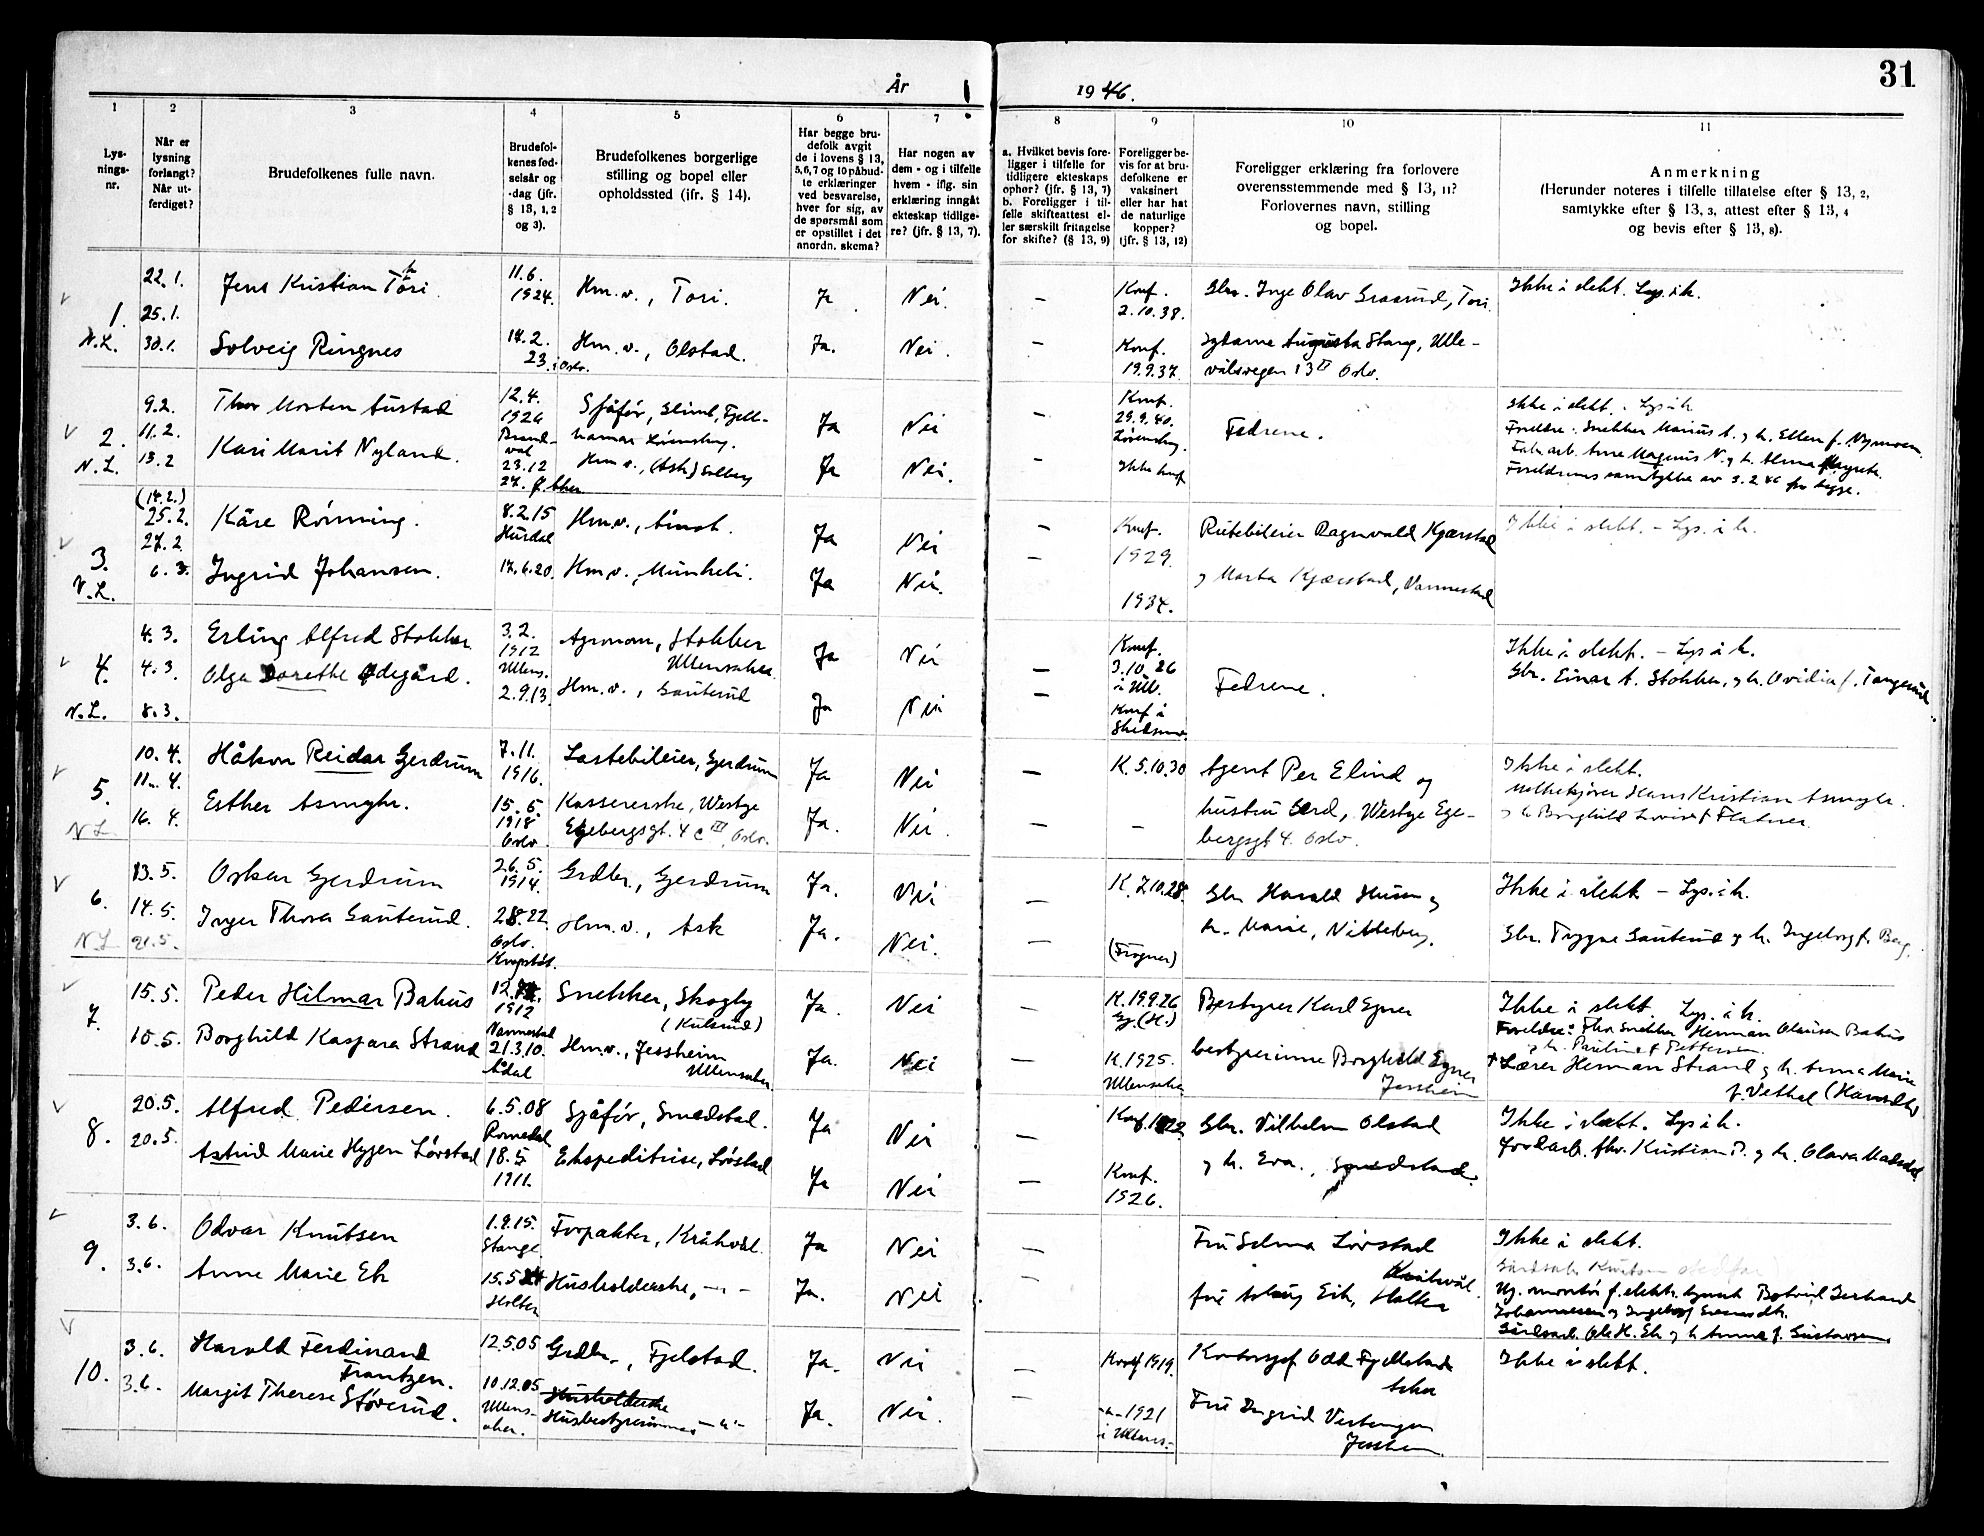 31
År 1 1946.
1 2 3 4 5 6 7 8 9 10 11
Lys-
nings-
nr.
Når er
lysning
forlangt?
Når ut-
ferdiget?
Brudefolkenes fulle navn.
Brudefol-
kenes fød-
selsår og
-dag (jfr.
§ 13, 1, 2
og 3).
Brudefolkenes borgerlige
stilling og bopel eller
opholdssted (ifr. § 14).
Har begge bru-
defolk avgit
de i lovens § 13,
5, 6, 7 og 10 påbud-
te erklæringer
ved besvarelse,
hver for sig, av
de spørsmål som
er opstillet i det
anordn. skema?
Har nogen av
dem - og i tilfelle
hvem - iflg. sin
erklæring inngåt
ekteskap tidlige-
re? (jfr. § 13, 7).
a. Hvilket bevis fore-
ligger i tilfelle for
tidligere ekteskaps
ophør? (jfr. § 13, 7)
b. Foreligger i til-
felle skifteattest el-
ler særskilt fritagelse
for skifte? (§ 13, 9)
Foreligger be-
vis for at bru-
defolkene er
vaksinert
eller har hat
de naturlige
kopper?
(jfr. § 13, 12)
Foreligger erklæring fra forlovere
overensstemmende med § 13, 11?
Forlovernes navn, stilling
og bopel.
Anmerkning
(Herunder noteres i tilfelle tillatelse efter § 13, 2,
samtykke efter § 13, 3, attest efter § 13, 4
og bevis efter § 13, 8).
1. N.L. 22.1. 25.1. 30.1.
Jens Kristian Tori 11.6. 1924. Hm.v., Tori. Ja Nei. — Konf. 2.10.38. Gbr. Inge Olav Graarud, Tori. Ikke i slekt. Lys. i k.
Solveig Ringnes 14.2. 23. i Oslo. Hm.v., Olstad. Ja. Nei. — Konf. 19.9.37. Augusta Stang, Ulle-
vålsvegen 13 Oslo.
2. N.L. 9.2. 11.2. 13.2
Thor Morten Austad 12.4. 1926 Sjåfør, Fjell-
hamar Lørenskog. Ja Nei — Konf. 29.9.40. Lørenskog. Fedrene. Ikke i slekt. Lys i k.
Kari Marit Nyland. 23.12 24. Hm.v., (Ask) Solberg Ja Nei. — Ikke konf
Foreldre: Snekker Marius A. og h. Ellen f. Nymoen.
Fabr.arb. Arne Magnus N. og h. Alma Margrete
Foreldrenes samtykke av 3.2.46 fra begge.
3. N.L. (14.2.) 25.2. 27.2 6.3.
Kåre Rønning. 8.2.15 Hurdal Hm.v., Ja Nei — Konf. 1929. Rutebileier Ragnvald Kjærstad Ikke i slekt. – Lys. i k.
Ingrid Johansen. 14.6.20. Hm.v., Ja Nei. — 1934. og Marta Kjærstad, Nannestad
4. N.L. 4.3. 4.3. 8.3.
Erling Alfred Stokker 3.2. 1912 Ullens. Agronom, Stokker
Ullensaker Ja Nei — Konf. 3.10.26 i Ull. Fedrene. Ikke i slekt. – Lys i k.
Olga Dorethe Ødegård. 2.9.13. Hm.v., Gauterud Ja Nei — Konf i Skedsmo.
Gbr. Einar A. Stokker, og h. Ovidia f. Tangerud.
5. N L 10.4. 11.4. 16.4.
Håkon Reidar Gjerdrum 7.11. 1916. Lastebileier, Gjerdrum Ja Nei — K. 5.10.30 Agent Per Elind og Ikke i slekt.
Esther Asmyhr. 15.5. 1918. Oslo Kassererske, Westye
Egebergsgt. 4 c III, Oslo. Ja. Nei. — — hustru Gerd, Westye Ege-
bergsgt 4. Oslo.
Melkekjører Hans Kristian Asmyhr.
og h. Borghild Lovise f. Flatner.
6. N L 13.5. 14.5. 21.5.
Oskar Gjerdrum 26.5. 1914. Grdbr., Gjerdrum Ja. Nei — K. 7.10.28. Gbr Harald Huser og Ikke i slekt – Lys. i k.
Inger Thora Gauterud. 28.22 Oslo. Hm.v., Ask Ja. Nei. — (Frogner) h. Marie, Nitteberg.
Gbr. Trygve Gauterud og h. Ingeborg f. Berg.
7. 15.5. 10.5.
Peder Hilmar Bakus 1912 Nannestad Snekker, Skogly Ja. Nei — K. 19.9.26 Bestyrer Karl Egner Ikke i slekt. Lys. i k.
Borghild Kaspara Strand 21.3.10. Ådal Hm.v., Jessheim
Ullensaker. Ja. Nei — K. 1925. Ullensaker bestyrerinne Borghild Egner
Jessheim
Foreldre: Snekker Herman Olausen Bakus
og h. Pauline f Pettersen.
Lærer Herman Strand og h. Anna Marie
8. 20.5. 20.5.
Alfred Pedersen. 6.5.08 Romedal Sjåfør, Smedstad. Ja Nei — Konf. 1922. Gbr. Vilhelm Olstad Ikke i slekt. Lys i k.
Astrid Marie Hygen Lørstad 18.5 1911. Ekspeditrise, Lørstad Ja Nei — Konf. 1926. og h. Eva., Smedstad.
Jordarb. Kristian P. og h. Olava
9. 3.6. 3.6.
Odvar Knutsen 1.9.15. Stange Forpakter, Kråkvål. Ja Nei — Fru Selma Lørstad
Kråkvål. Ikke i slekt.
Anne Marie Ek 15.5 24 Holter Husholderske, – " – Ja. Nei — Eik, Holter
10. 3.6. 3.6.
Harald Ferdinand
Frantzen. 12.5.05 Grdbr., Fjelstad. Ja. Nei — Konf 1919. Odd Fjellstad
Asker Ikke i slekt.
Margit Therese Støverud. 10.12.05 Ullens-
aker. Husholderske
Husbestyrerinne – " – Ja. Nei. — – " – 1921 i Ullens. Fru Ingrid
Jessheim.